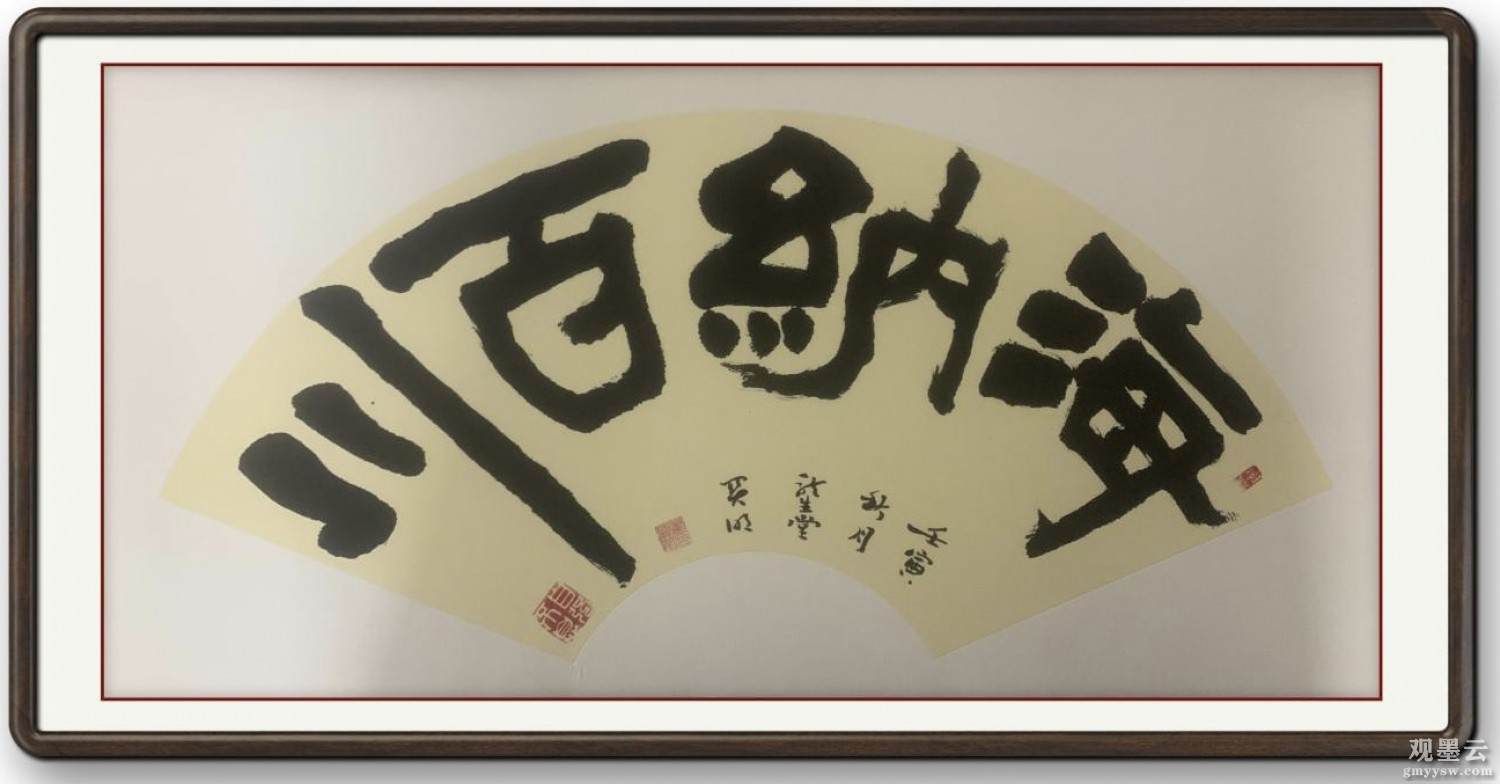 海納百川
壬寅
秋月
堂
吴明
观墨云
gmyysw.com